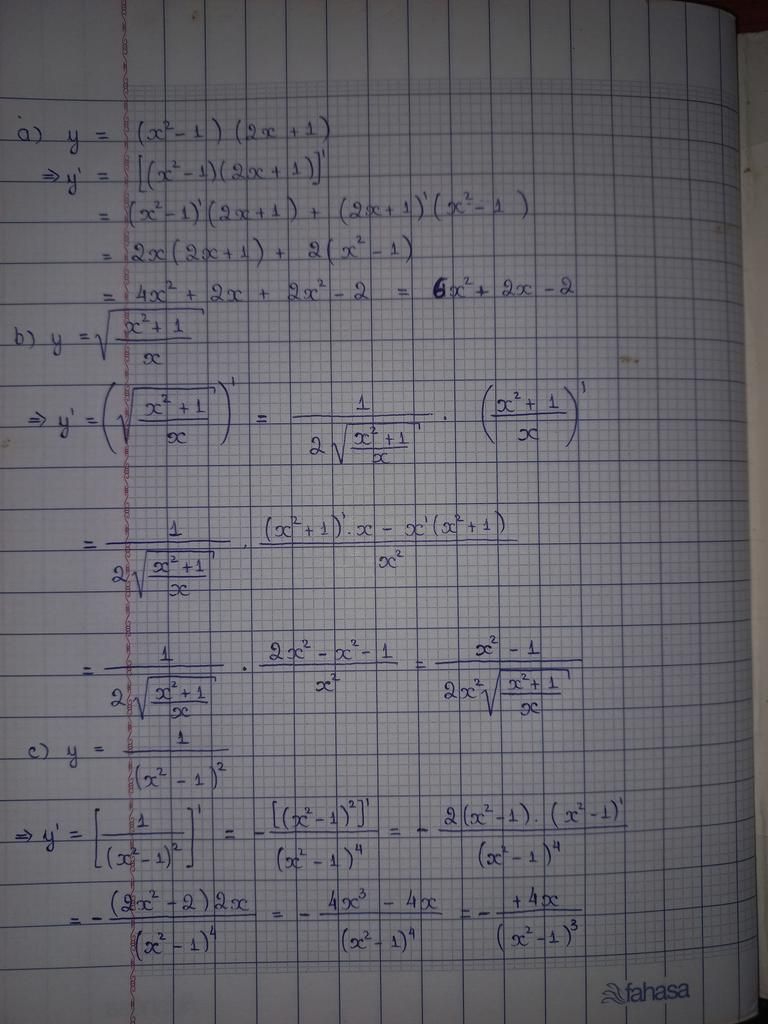 a) y = (x² - 1) (2x + 1)
⇒ y' = [(x² - 1)(2x + 1)]'
= (x² - 1)'(2x + 1) + (2x + 1)'(x² - 1)
= 2x(2x + 1) + 2(x² - 1)
= 4x² + 2x + 2x² - 2 = 6x² + 2x - 2
b) y = √((x² + 1)/x)
⇒ y' = (√((x² + 1)/x))' = 1/(2√((x² + 1)/x)) · ((x² + 1)/x)'
= 1/(2√((x² + 1)/x)) · ((x² + 1)'.x - x'(x² + 1))/x²
= 1/(2√((x² + 1)/x)) · (2x² - x² - 1)/x² = (x² - 1)/(2x²√((x² + 1)/x))
c) y = 1/(x² - 1)²
⇒ y' = [1/(x² - 1)²]' = - [(x² - 1)²]'/(x² - 1)⁴ = - 2(x² - 1) . (x² - 1)'/(x² - 1)⁴
= - (2x² - 2) 2x/(x² - 1)⁴ = - (4x³ - 4x)/(x² - 1)⁴ = - (+ 4x)/(x² - 1)³
fahasa